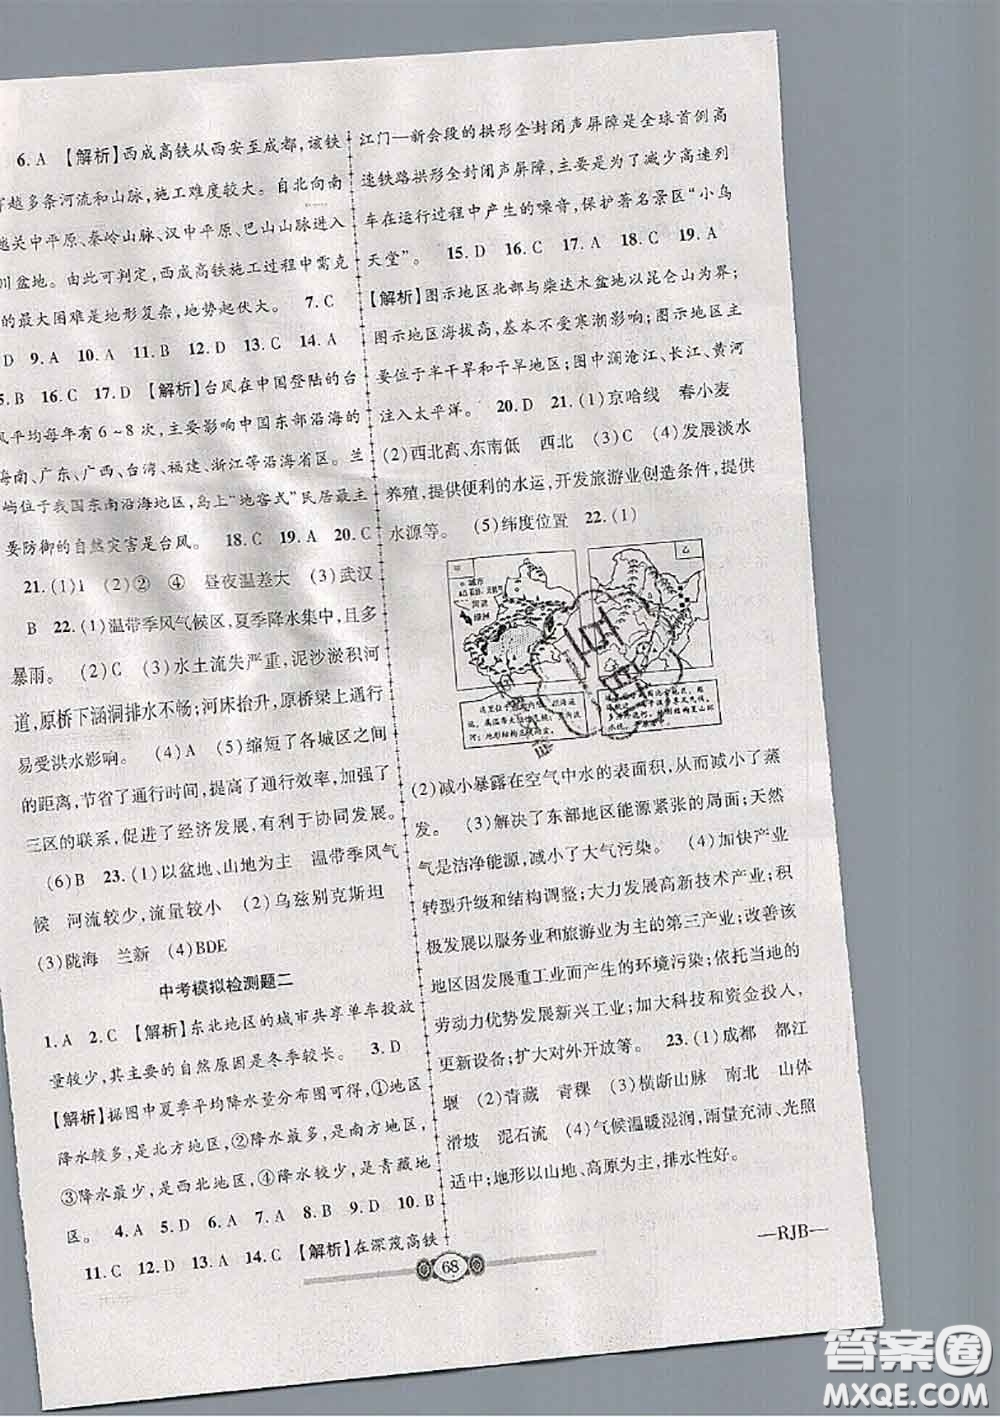 6. A 【解析】西成高铁从西安至成都,该铁
穿越多条河流和山脉,施工难度较大。自北向南
越关中平原、秦岭山脉、汉中平原、巴山山脉进入
川盆地。由此可判定,西成高铁施工过程中需克
的最大困难是地形复杂,地势起伏大。 7. C
D 9. A 10. A 11. B 12. D 13. C 14. A
5. B 16. C 17. D 【解析】台风在中国登陆的台
风平均每年有6~8次,主要影响中国东部沿海的
海南、广东、广西、台湾、福建、浙江等沿海省区。兰
屿位于我国东南沿海地区,岛上“地窖式”民居最主
要防御的自然灾害是台风。 18. C 19. A 20. C
21. (1)1 (2)② ④ 昼夜温差大 (3)武汉
B 22. (1)温带季风气候区,夏季降水集中,且多
暴雨。 (2)C (3)水土流失严重,泥沙淤积河
道,原桥下涵洞排水不畅;河床抬升,原桥梁上通行
易受洪水影响。 (4)A (5)缩短了各城区之间
的距离,节省了通行时间,提高了通行效率,加强了
三区的联系,促进了经济发展,有利于协同发展。
(6)B 23. (1)以盆地、山地为主 温带季风气
候 河流较少,流量较小 (2)乌兹别克斯坦
(3)陇海 兰新 (4)BDE
中考模拟检测题二
1. A 2. C 【解析】东北地区的城市共享单车投放
量较少,其主要的自然原因是冬季较长。 3. D
【解析】据图中夏季平均降水量分布图可得,①地区
降水较多,是北方地区,②降水最多,是南方地区,
③降水最少,是西北地区,④降水较少,是青藏地
区。 4. A 5. D 6. A 7. A 8. B 9. D 10. B
11. C 12. D 13. A 14. C 【解析】在深茂高铁
江门—新会段的拱形全封闭声屏障是全球首例高
速铁路拱形全封闭声屏障,主要是为了减少高速列
车在运行过程中产生的噪音,保护著名景区“小鸟
天堂”。 15. D 16. C 17. A 18. C 19. A
【解析】图示地区北部与柴达木盆地以昆仑山为界;
图示地区海拔高,基本不受寒潮影响;图示地区主
要位于半干旱和干旱地区;图中澜沧江、长江、黄河
注入太平洋。 20. D 21. (1)京哈线 春小麦
(2)西北高、东南低 西北 (3)C (4)发展淡水
养殖,提供便利的水运,开发旅游业创造条件,提供
水源等。 (5)纬度位置 22. (1)
甲
城市
河流
绿洲
乙
(2)减小暴露在空气中水的表面积,从而减小了蒸
发。 (3)解决了东部地区能源紧张的局面;天然
气是洁净能源,减小了大气污染。 (4)加快产业
转型升级和结构调整;大力发展高新技术产业;积
极发展以服务业和旅游业为主的第三产业;改善该
地区因发展重工业而产生的环境污染;依托当地的
劳动力优势发展新兴工业;加大科技和资金投入,
更新设备;扩大对外开放等。 23. (1)成都 都江
堰 (2)青藏 青稞 (3)横断山脉 南北 山体
滑坡 泥石流 (4)气候温暖湿润,雨量充沛、光照
适中;地形以山地、高原为主,排水性好。
—RJB—
68
答案圈
MXQE.COM